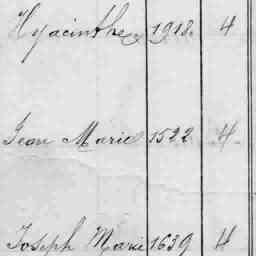 Hyacinthe 1918 4
Jean Marie 1522 4
Joseph Marie 1639 4